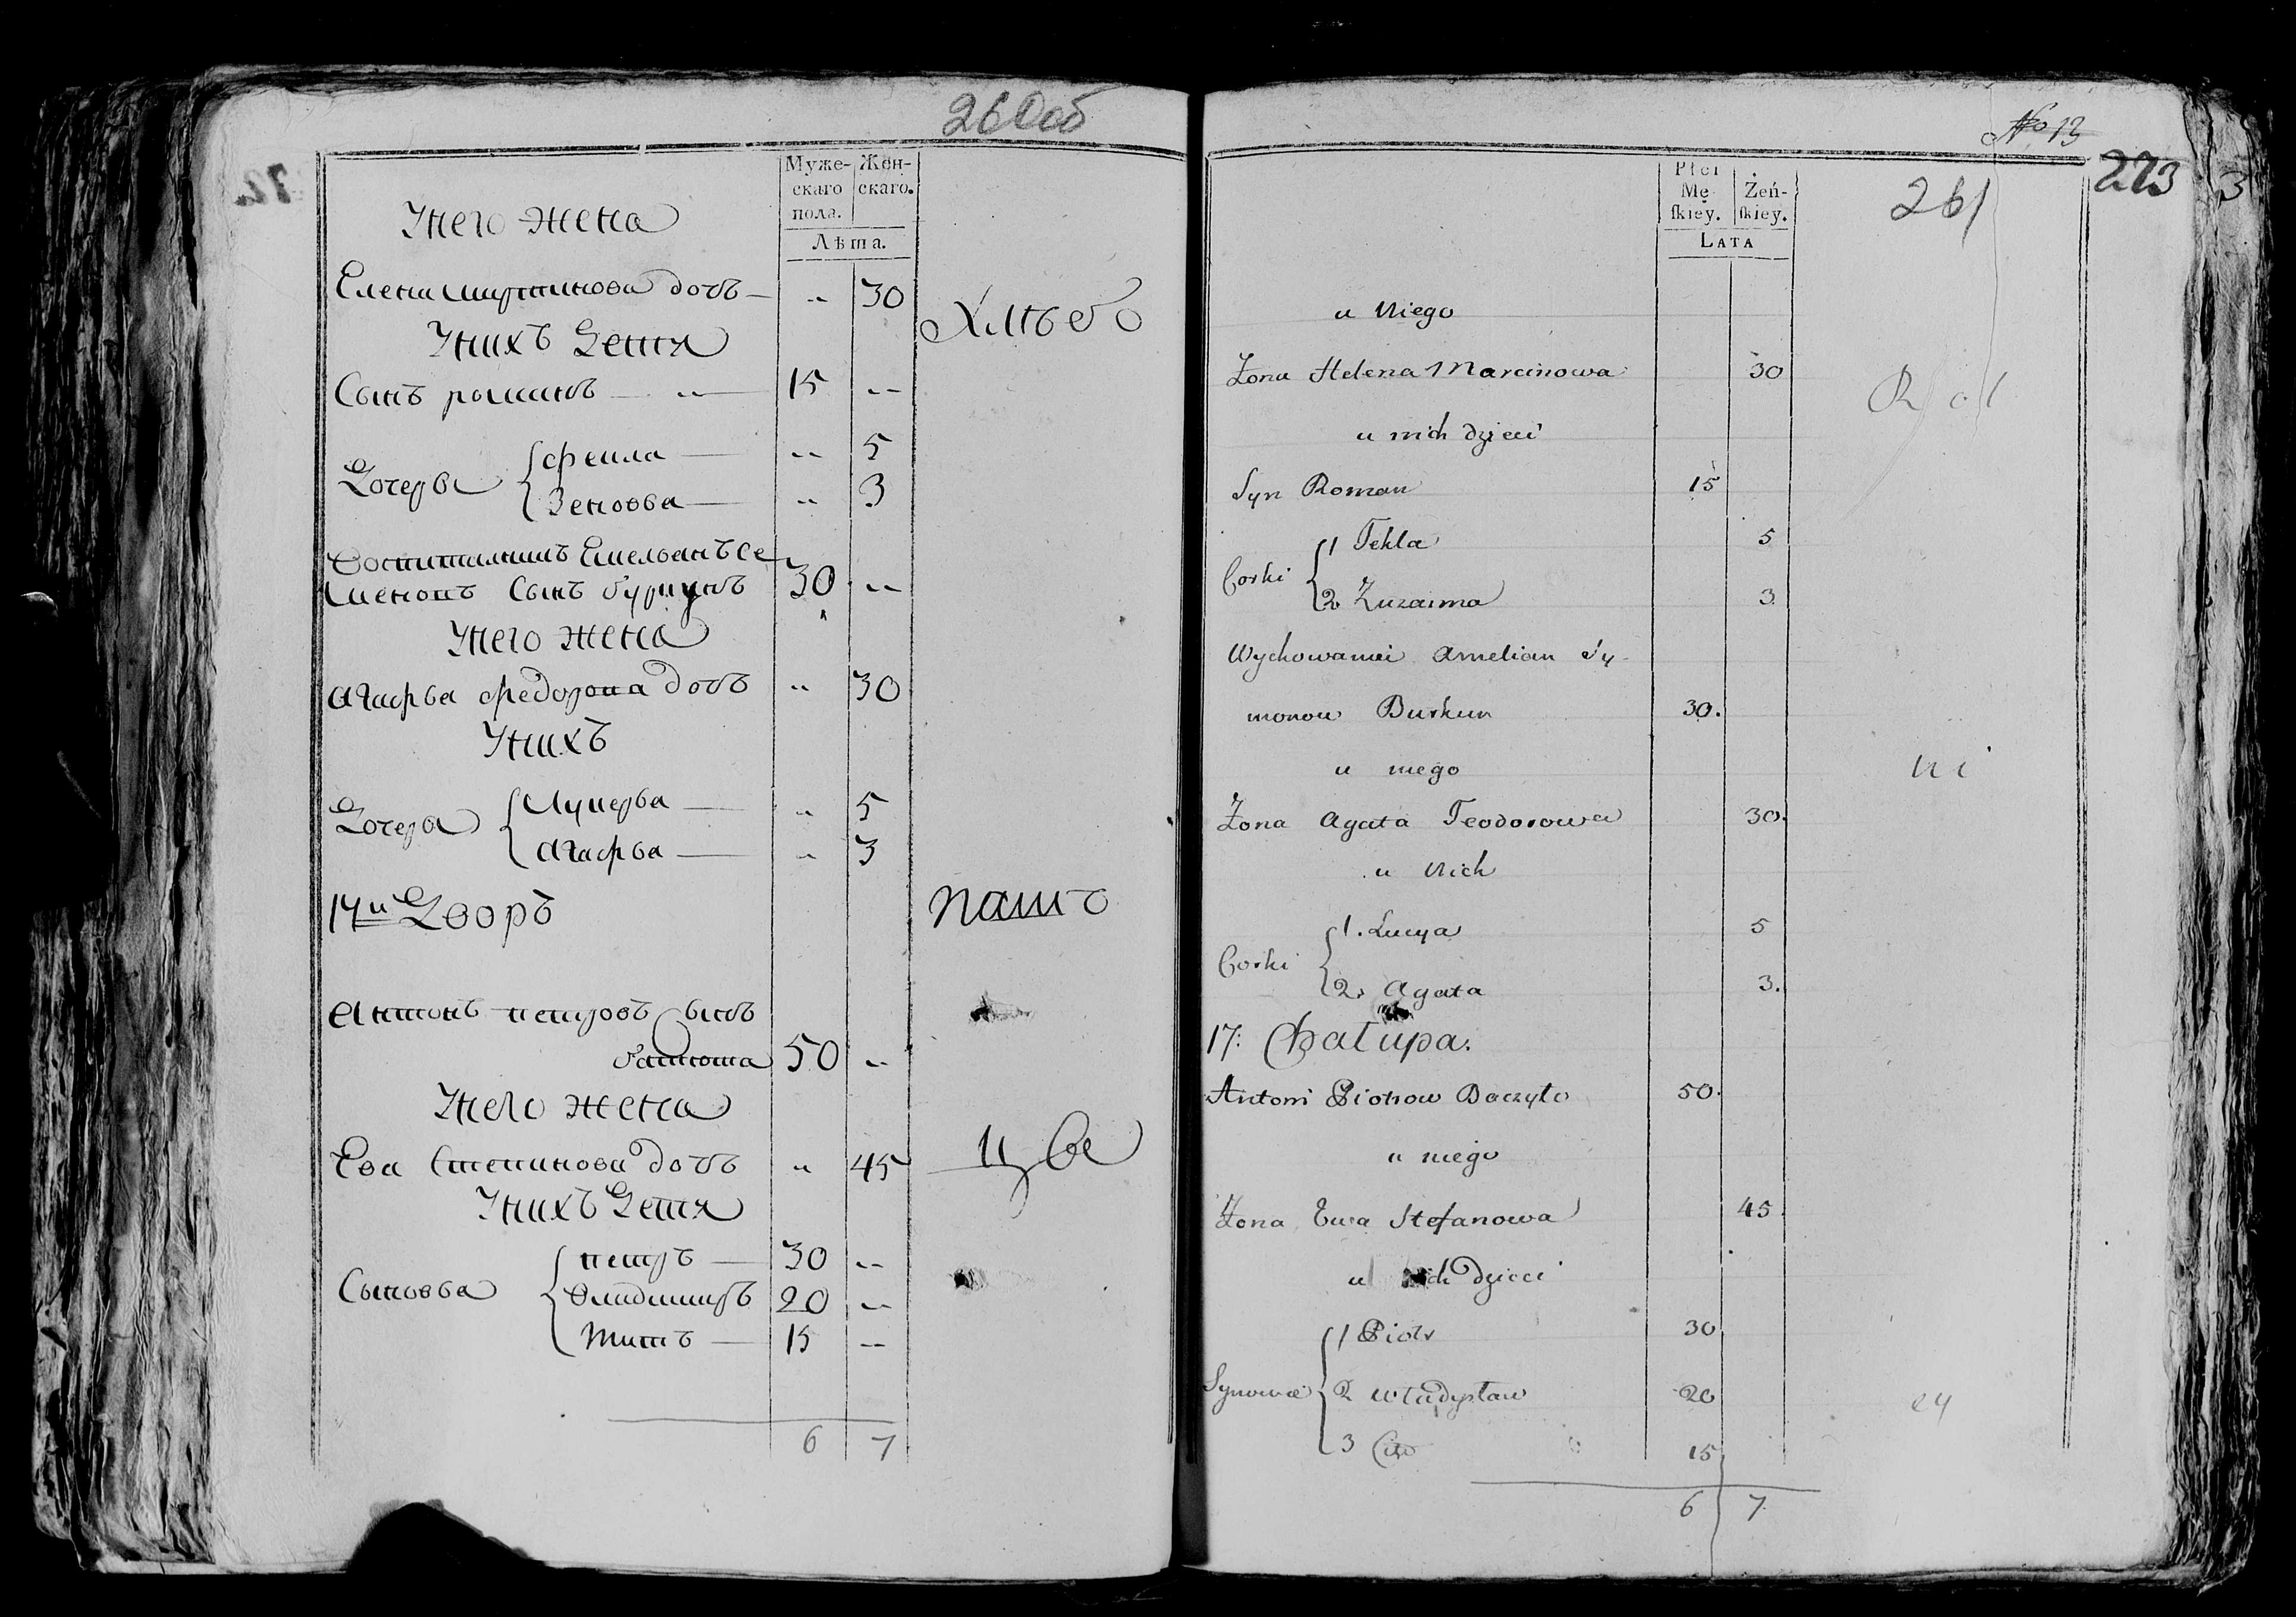 260об
Муже-
скаго
пола.
Жен-
скаго.
Лѣта.
Унего жена
Елена мартинова дочь — " 30
хлѣбо
Унихъ Дети
Сынъ романъ — " — 15 "
Дочерѣ { фекла — " 5
Зеновѣа — " 3
Воспитанникъ Емельянъ Се
меновъ Сынъ буркунъ 30 "
Унего жена
Агафѣа федорова дочь " 30
Унихъ
Дочерѣ { Лукерѣа — " 5
Агафѣа — " 3
17й Дворъ
пашо
Антонъ петровъ Сынъ
50 "
Унего жена
Ева Степанова дочь " 45
Унихъ Дети
Сыновѣа { петръ — 30 "
Владимиръ 20 "
титъ — 15 "
6 7
No 13
273
261
Płci
Mę-
skiey.
Żeń-
skiey.
LATA
u Niego
Żona Helena Marcinowa 30
Rol
u nich dzieci
Syn Roman 15
Corki { 1 Tekla 5
2 Zuzanna 3
Wychowaniei Amelian Sy-
monow Burkun 30.
u niego
ni
Zona Agata Teodorowa 30.
u Nich
Corki { 1. Lucya 5
2. Agata 3.
17: Chałupa.
Antoni Piotrow Baczyło 50.
u niego
Zona Ewa Stefanowa 45.
u nich dzieci
Synowie { 1 Piotr 30
2 Władysław 20
3 15
6 7